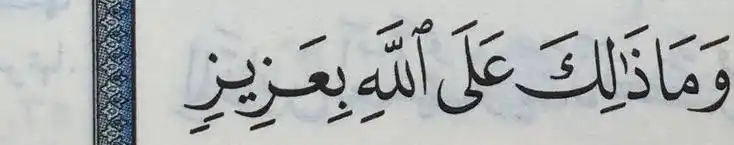 وَمَا ذَٰلِكَ عَلَى ٱللَّهِ بِعَزِيزٍ